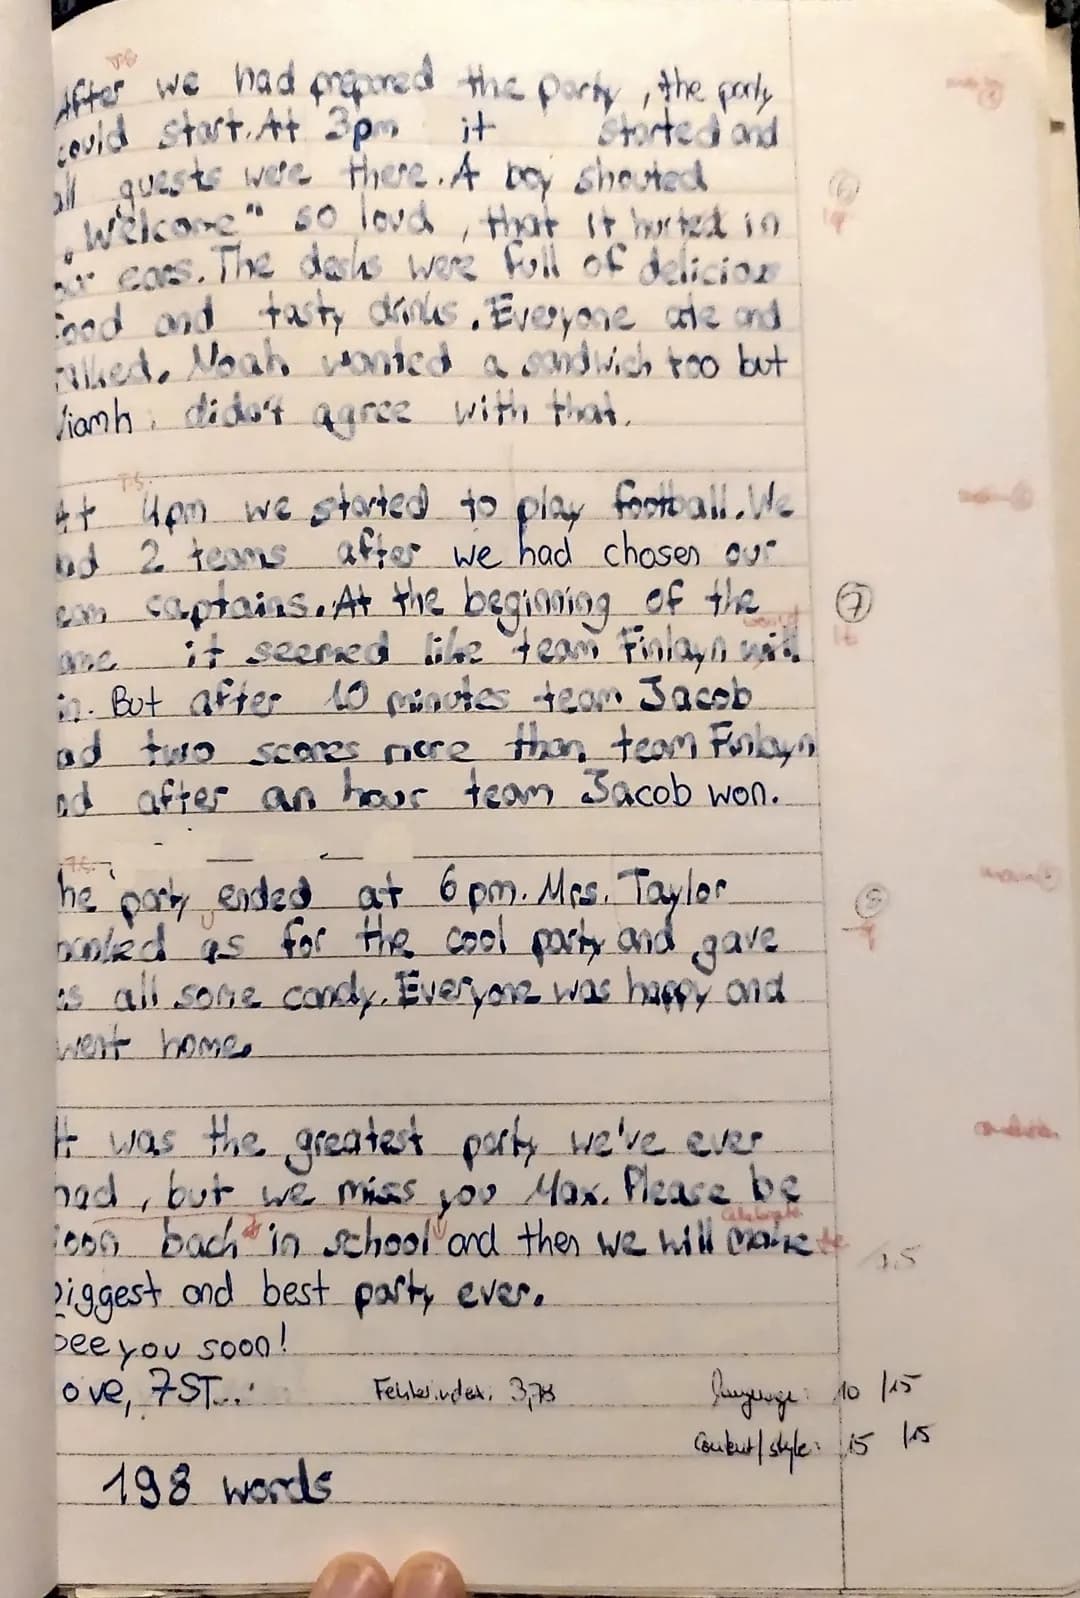 After we had prepared the party, the party
could start. At 3pm it started and
all guests were there. A boy shouted
„Welcome" so loud, that it hurted in
our ears. The desks were full of delicious
food and tasty drinks. Everyone ate and
talked. Noah wanted a sandwich too but
Niamh didn't agree with that.
T.S.
At 4pm we started to play football. We
had 2 teams after we had chosen our
team captains. At the beginning of the
7
would
game it seemed like team Finlayn will
win. But after 10 minutes team Jacob
had two scores more than team Finlayn
and after an hour team Jacob won.
T.S.
The party ended at 6 pm. Mrs. Taylor
8
thanked us for the cool party and gave
us all some candy. Everyone was happy and
went home.
It was the greatest party we've ever
had, but we miss you Max. Please be
celebrate
soon back in school and then we will make the
biggest and best party ever.
See you soon!
Love, 7ST...
Fehlerindex: 3,78
language: 10 /15
Content/style: 15 /15
198 words